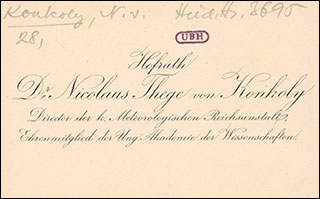 Konkoly, N. v. Heid. Hs. 3695
28,
UBH
Hofrath
Dr. Nicolaus Thege von Konkoly
Director der k. Meteorologischen Reichsanstalt,
Ehrenmitglied der Ung. Akademie der Wissenschaften.